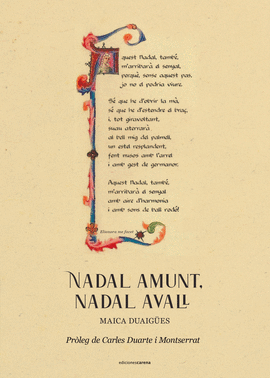 Aquest Nadal, també,
m'arribarà el senyal,
perquè, sense aquest pas,
jo no el podria viure.
Sé que he d'obrir la mà,
sé que he d'estendre el braç,
i, tot giravoltant,
suau aterrarà
al bell mig del palmell,
un estel resplendent,
font nuaos amb l'arrel
i amb gest de germanor.
Aquest Nadal, també,
m'arribarà el senyal
amb aire d'harmonia
i amb sons de ball rodó!
Elionora me fecit
NADAL AMUNT,
NADAL AVALL
MAICA DUAIGÜES
Pròleg de Carles Duarte i Montserrat
edicionescarena